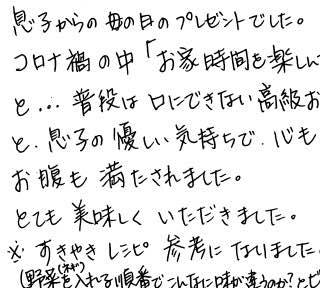 息子からの母の日のプレゼントでした。
コロナ禍の中「お家時間を楽しん
と…普段は口にできない高級お
と、息子の優しい気持ちで、心も
お腹も満たされました。
とても美味しくいただきました。
※すきやきレシピ参考になりました
(野菜(ネギ)を入れる順番でこんなに味が違うのか?とビ